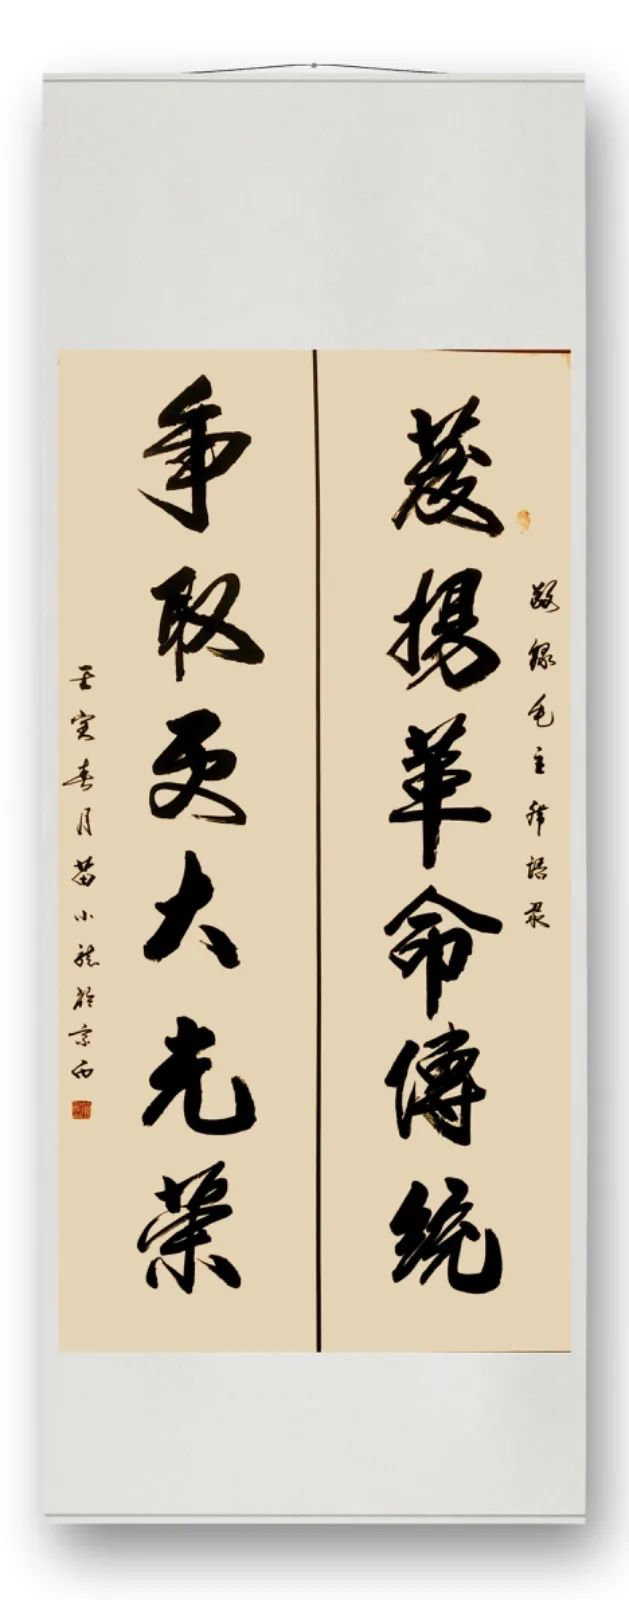 敬録毛主席語录
發揚革命傳統
爭取更大光榮
壬寅春月苗小龍於京西